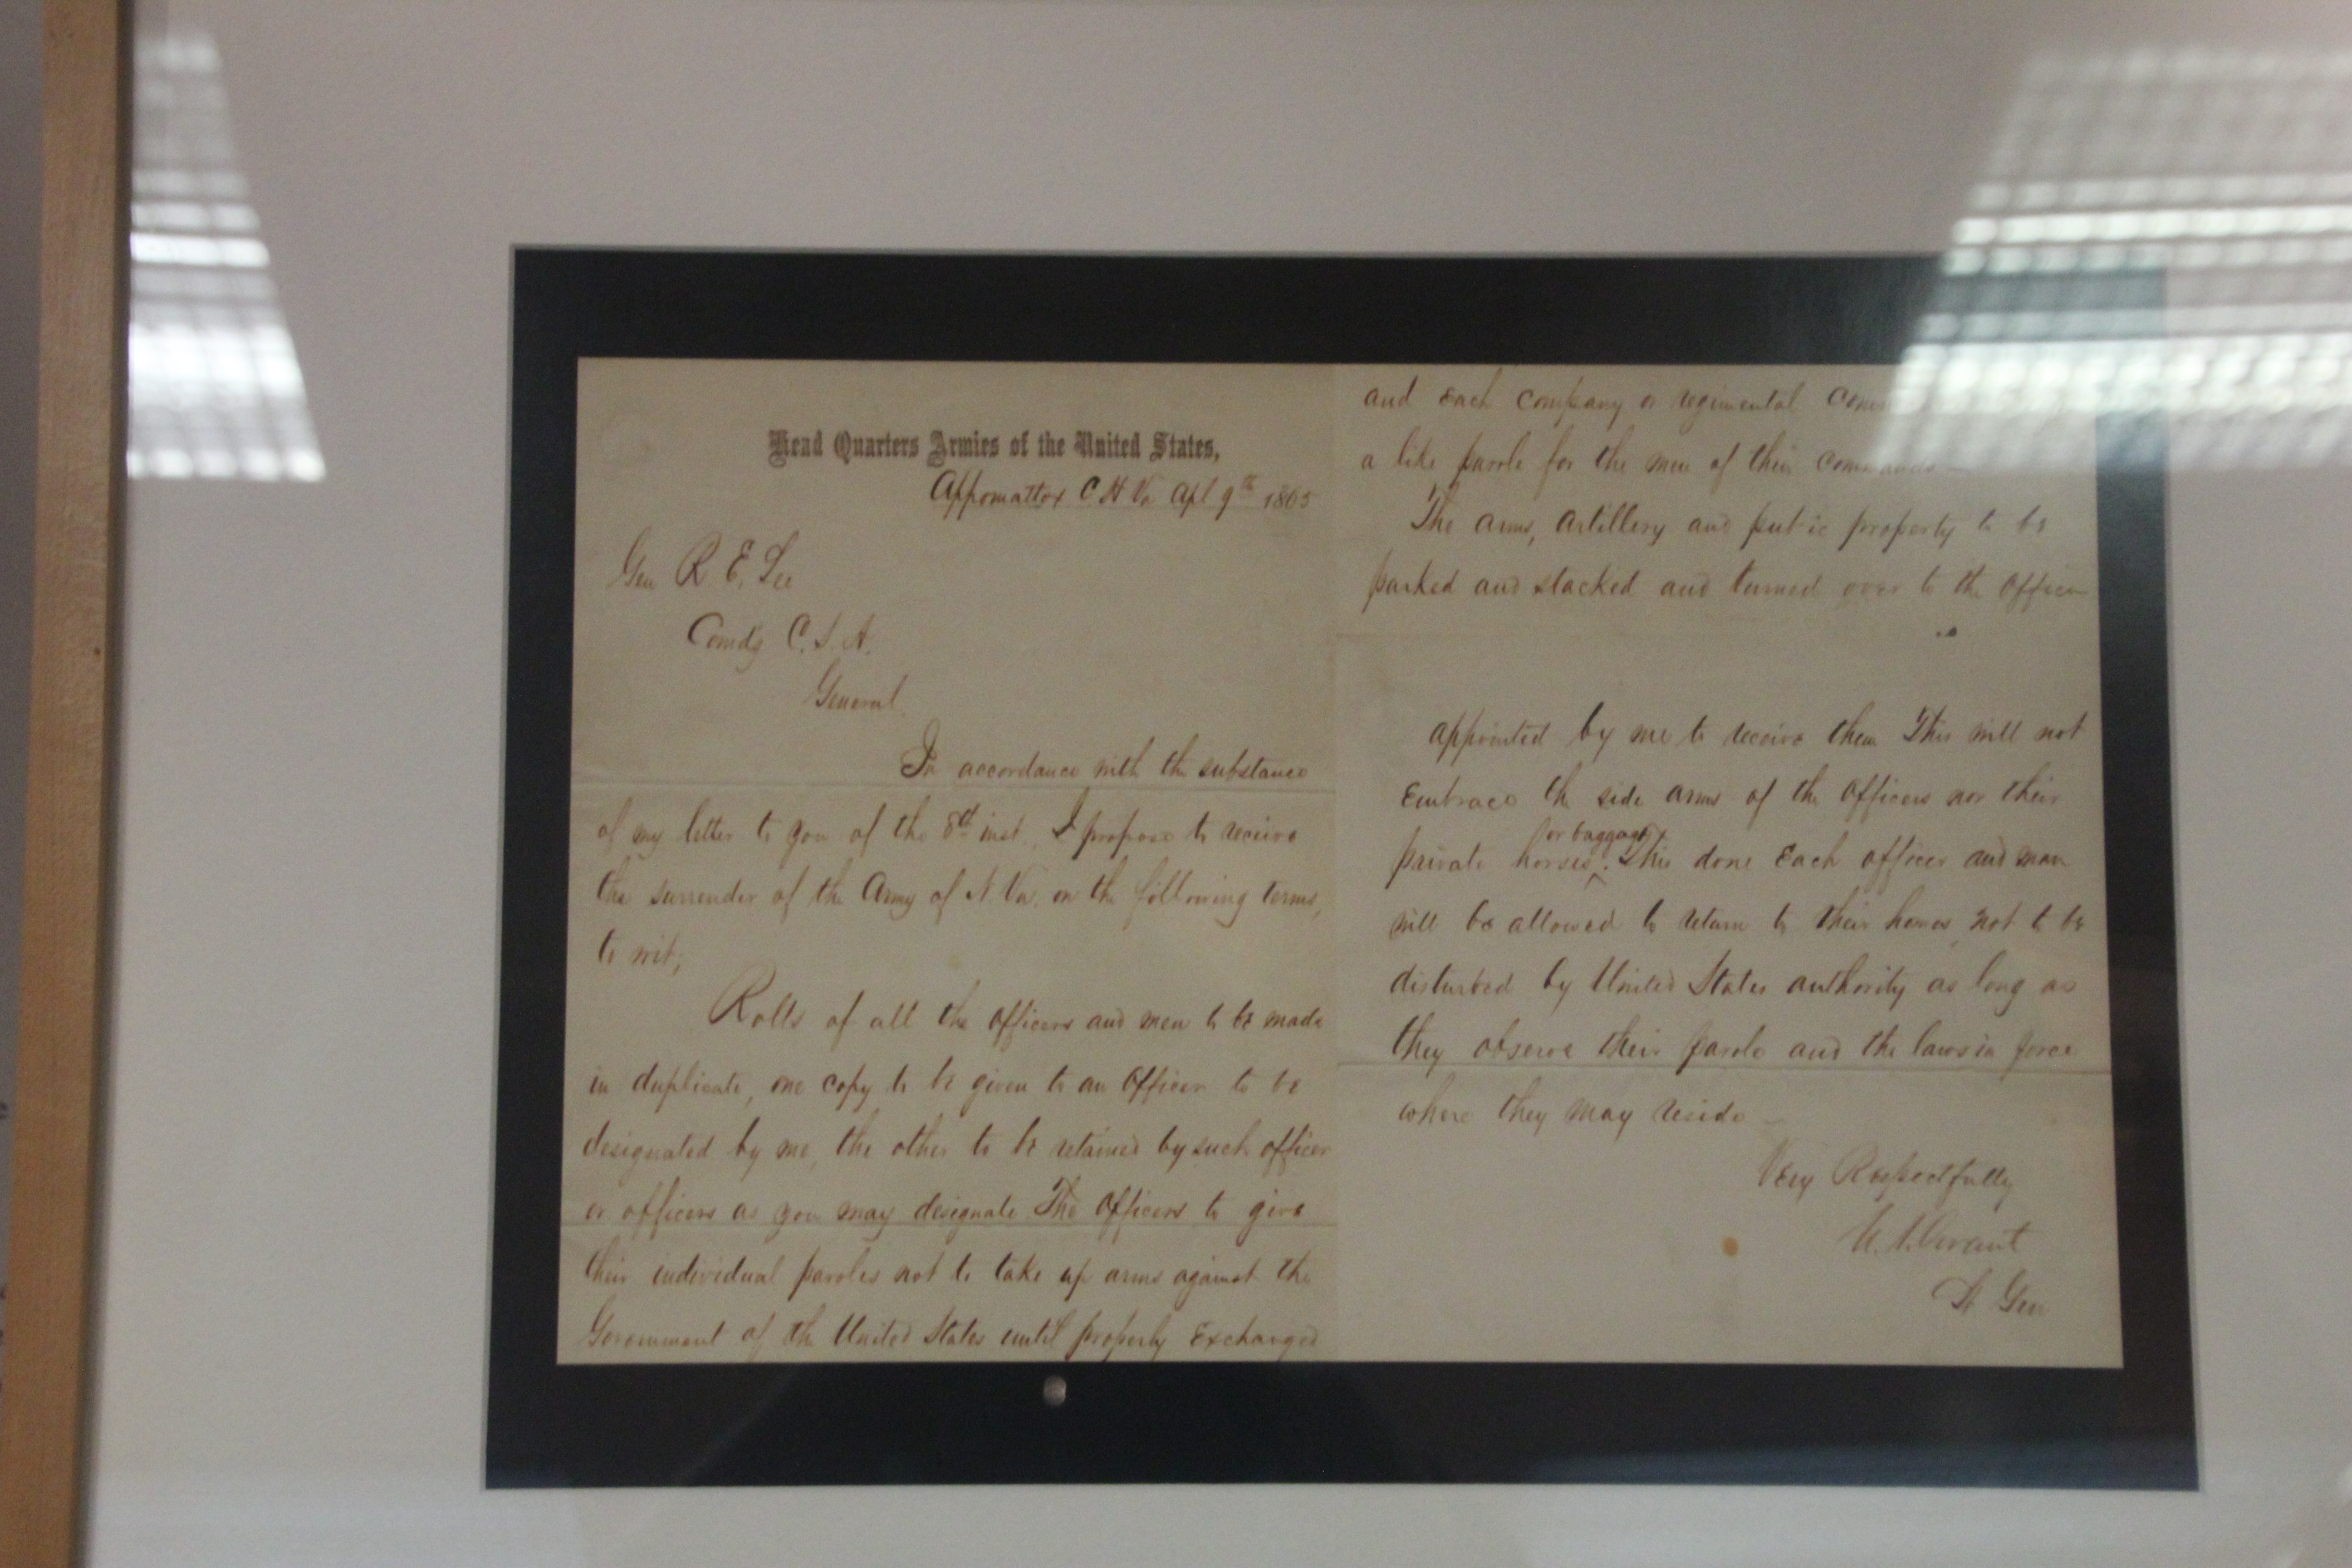 Head Quarters Armies of the United States,
Appomattox C. H. Va. Apl 9th 1865
Gen R. E. Lee
Comd'g C. S. A.
General,
In accordance with the substance
of my letter to you of the 8th inst. I propose to receive
the surrender of the Army of N. Va. on the following terms,
to wit;
Rolls of all the officers and men to be made
in duplicate, one copy to be given to an officer to be
designated by me, the other to be retained by such officer
or officers as you may designate. The officers to give
their individual paroles not to take up arms against the
Government of the United States until properly Exchanged
and each company or regimental
a like parole for the men of their commands—
The arms, artillery and public property to be
parked and stacked and turned over to the officer
appointed by me to receive them. This will not
Embrace the side arms of the officers nor their
or baggage
private horses. This done Each officer and man
will be allowed to return to their homes not to be
disturbed by United States authority as long as
they observe their parole and the laws in force
where they may reside—
Very Respectfully
U. S. Grant
Lt Gen